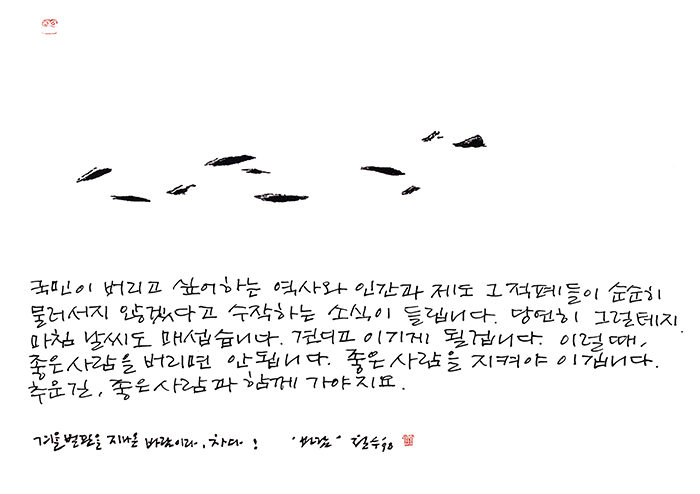 국민이 버리고 싶어하는 역사와 인간과 제도 그 적폐들이 순순히
물러서지 않겠다고 수작하는 소식이 들립니다. 당연히 그럴테지
마침 날씨도 매섭습니다. 견디고 이기게 될겁니다. 이럴때,
좋은사람을 버리면 안됩니다. 좋은사람을 지켜야 이깁니다.
추운길, 좋은사람과 함께 가야지요.
겨울벌판을 지나온 바람이라, 차다! "바람" 철수 98